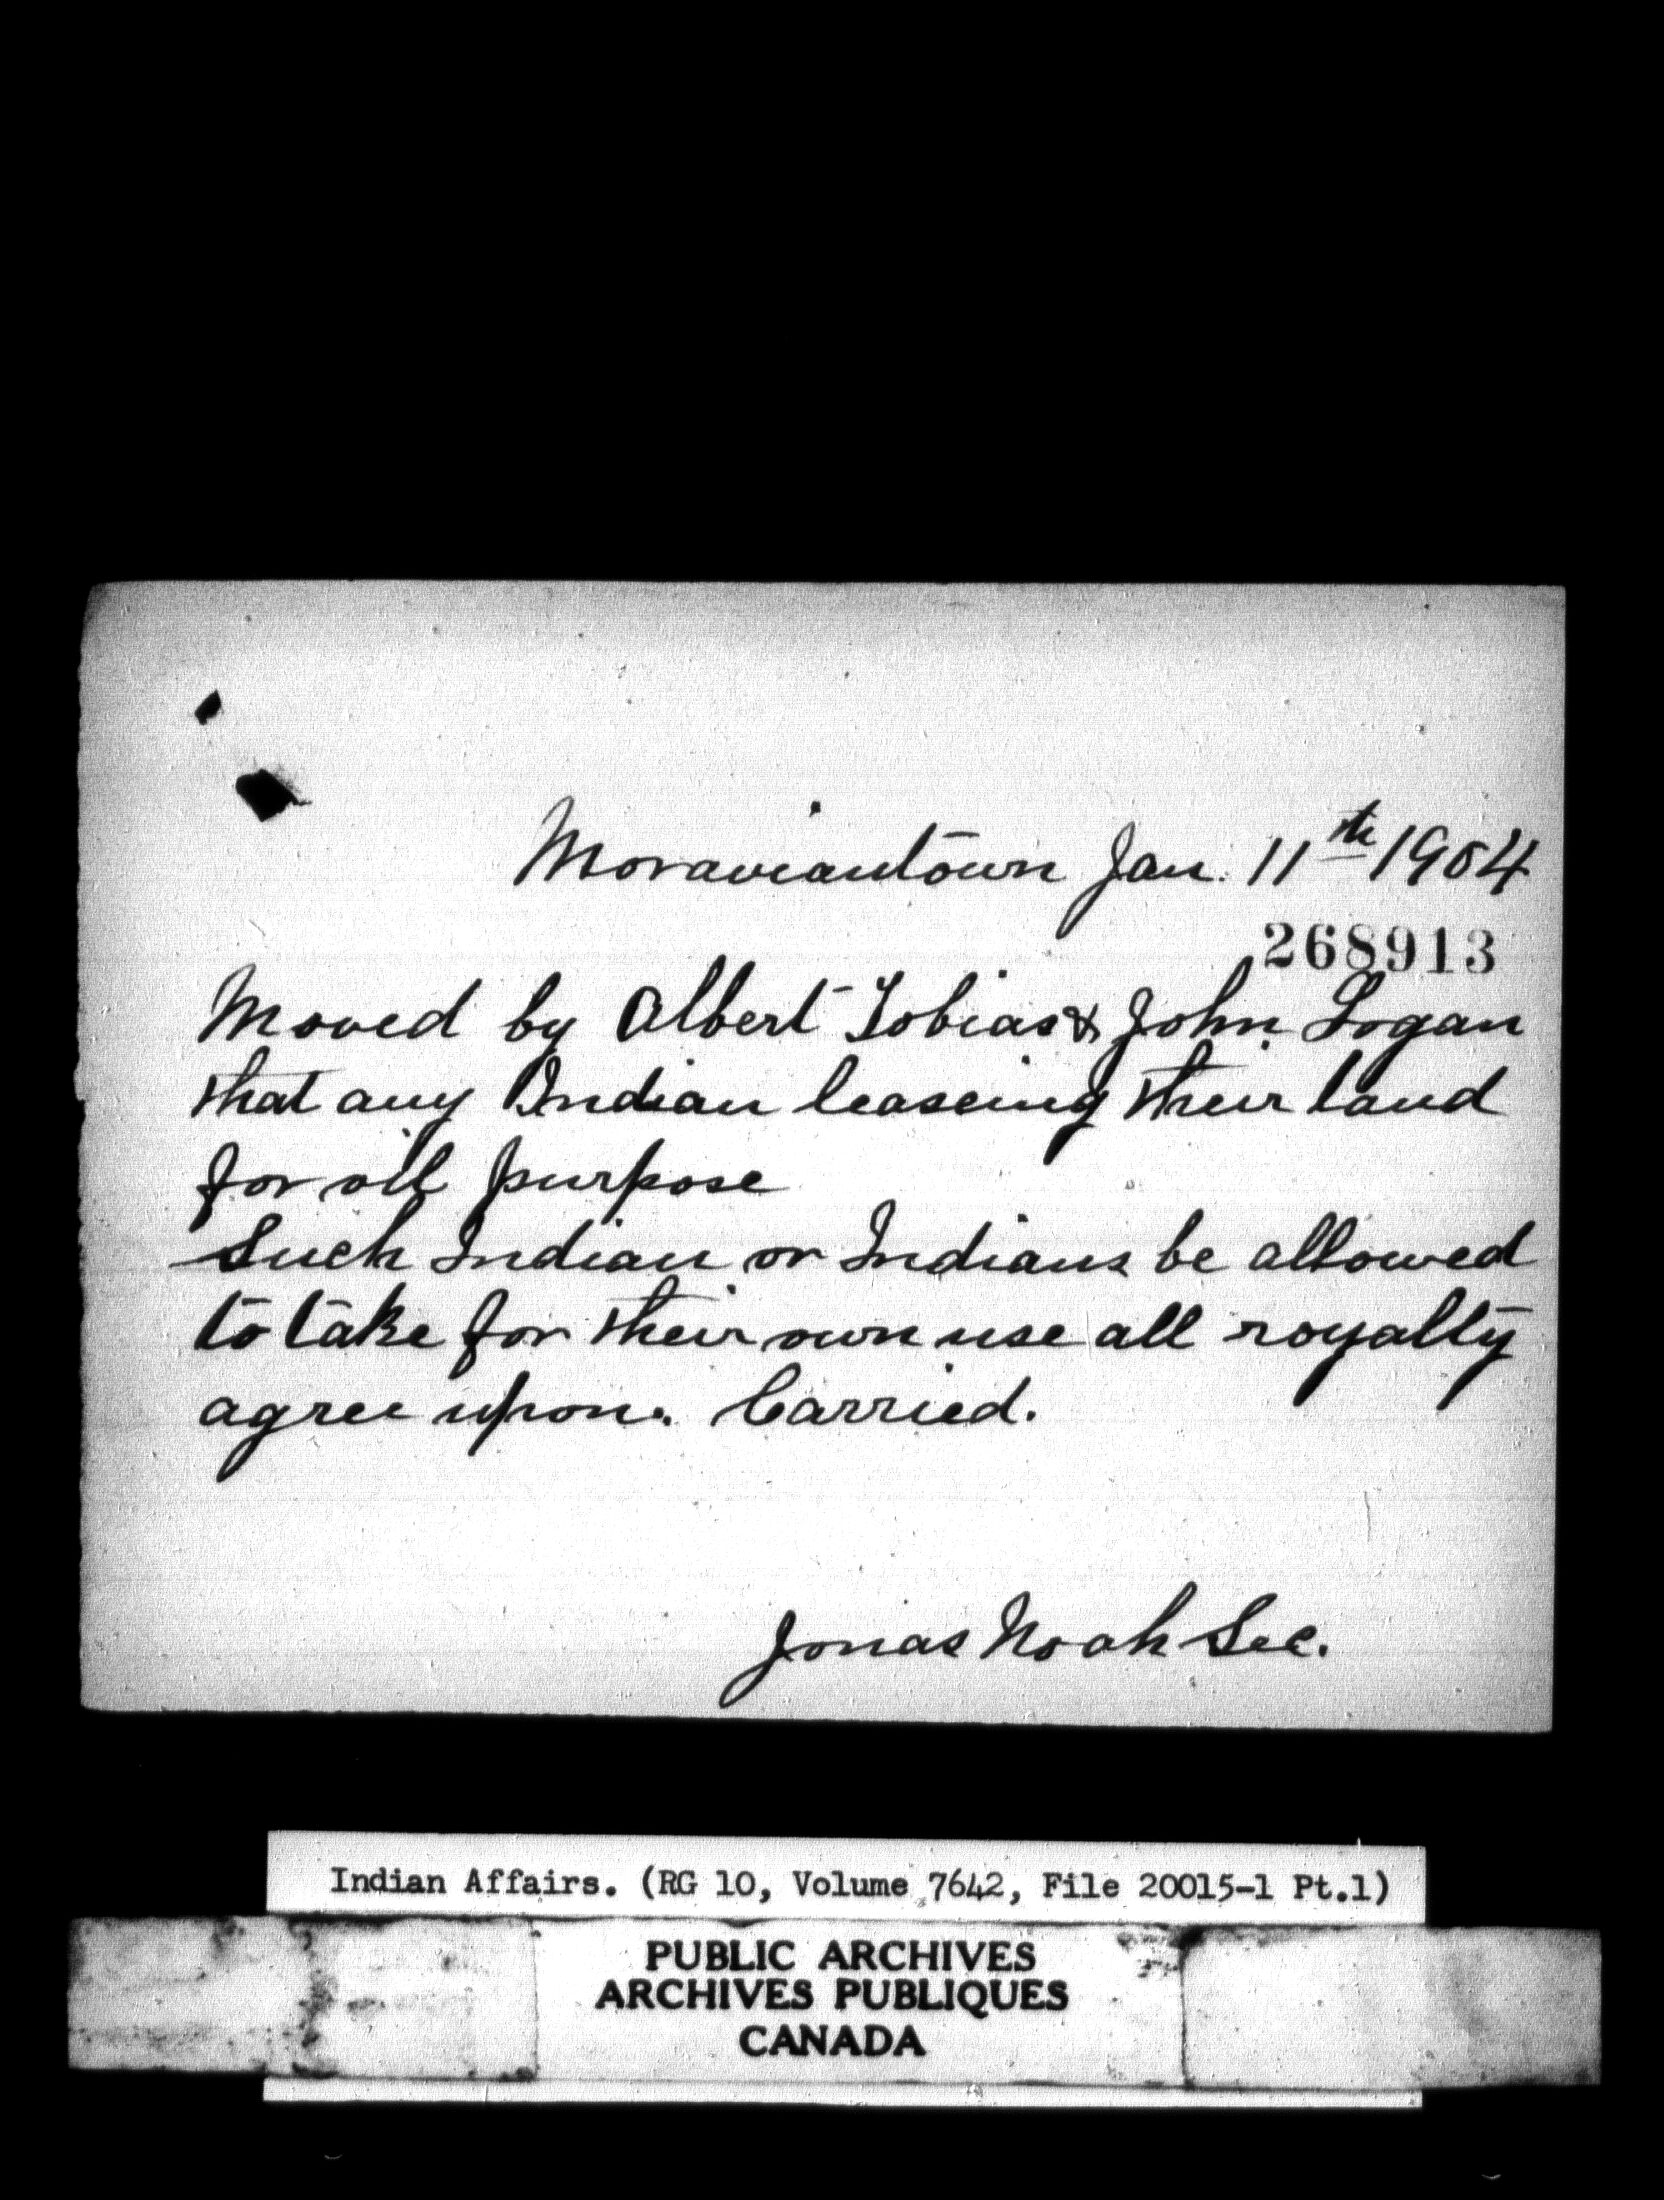 Moraviantown Jan. 11th 1904
268913
Moved by Albert Tobias & John Logan
that any Indian leaseing their land
for oil purpose
Such Indian or Indians be allowed
to take for their own use all royalty
agree upon. Carried.
Jonas Noah Sec.
Indian Affairs. (RG 10, Volume 7642, File 20015-1 Pt.1)
PUBLIC ARCHIVES
ARCHIVES PUBLIQUES
CANADA